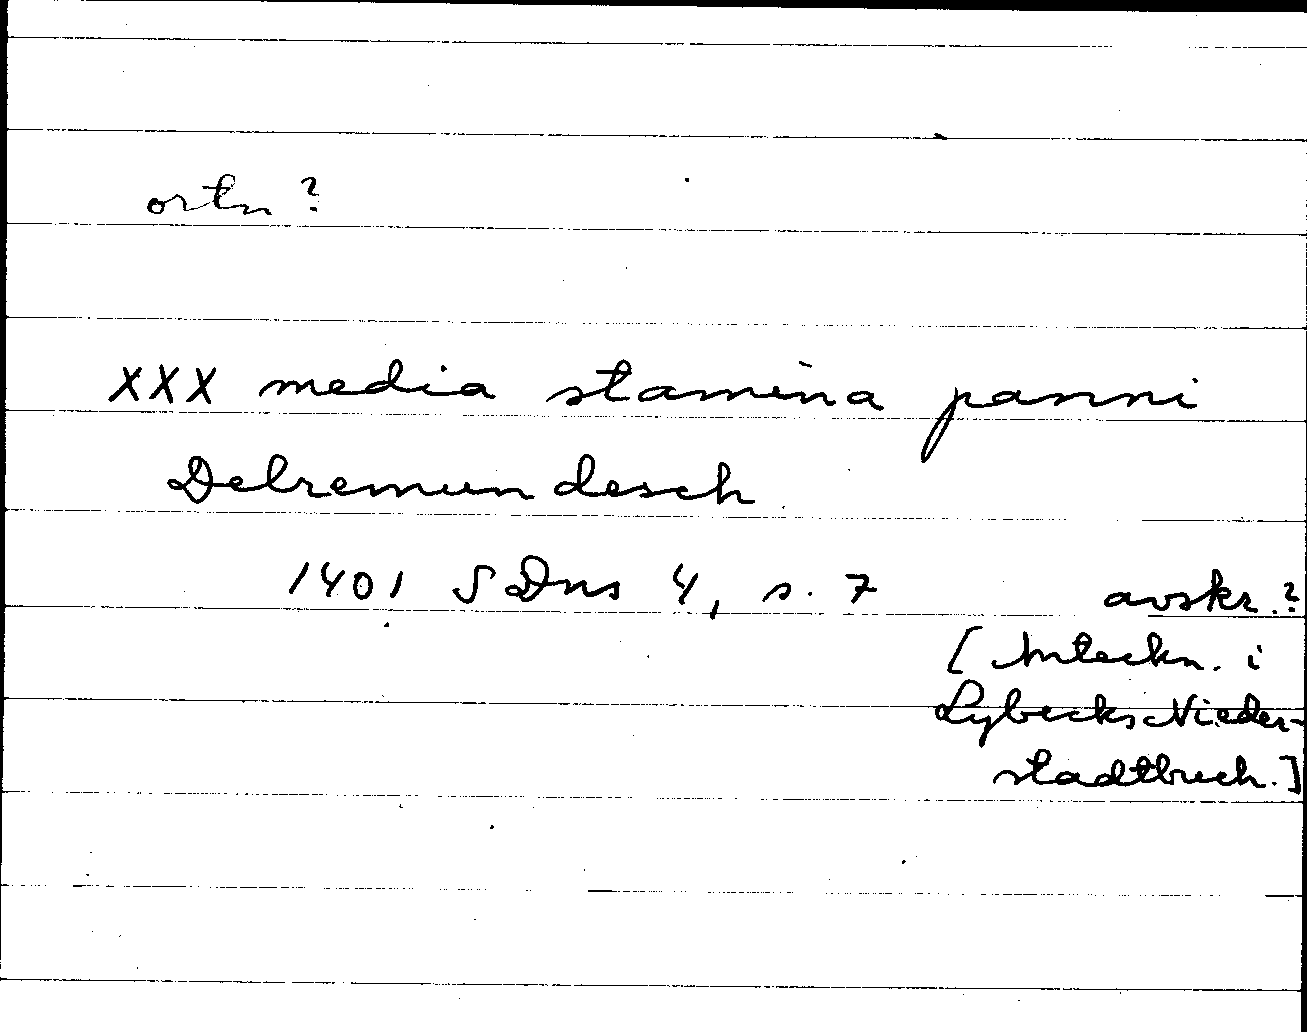 ortn ?
XXX media stamina panni
Delremundesch
1401 SDns 4, s. 7 avskr. ?
[Anteckn. i
Lybecks Nieder-
stadtbuch.]